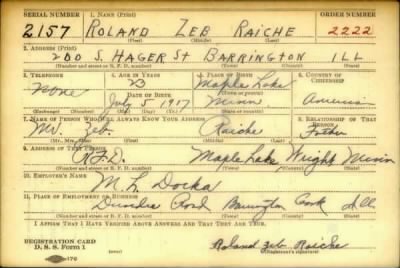 SERIAL NUMBER 1. NAME (Print) ORDER NUMBER
2157 ROLAND ZEB RAICHE 2222
(First) (Middle) (Last)
2. ADDRESS (Print)
200 S. HAGER St BARRINGTON ILL
(Number and street or R. F. D. number) (Town) (County) (State)
3. TELEPHONE 4. AGE IN YEARS 5. PLACE OF BIRTH 6. COUNTRY OF CITIZENSHIP
None 23 Maple Lake
DATE OF BIRTH (Town or county)
July 5 1917 Minn America
(Exchange) (Number) (Mo.) (Day) (Yr.) (State or country)
7. NAME OF PERSON WHO WILL ALWAYS KNOW YOUR ADDRESS 8. RELATIONSHIP OF THAT PERSON
Mr. Zeb. Raiche Father
(Mr., Mrs., Miss) (First) (Middle) (Last)
9. ADDRESS OF THAT PERSON
R.F.D. Maple Lake Wright Minn
(Number and street or R. F. D. number) (Town) (County) (State)
10. EMPLOYER'S NAME
M. L. Docka
11. PLACE OF EMPLOYMENT OR BUSINESS
Dundee Road Barrington Cook Ill.
(Number and street or R. F. D. number) (Town) (County) (State)
I AFFIRM THAT I HAVE VERIFIED ABOVE ANSWERS AND THAT THEY ARE TRUE.
REGISTRATION CARD
D. S. S. Form 1 Roland Zeb Raiche
(Registrant's signature)